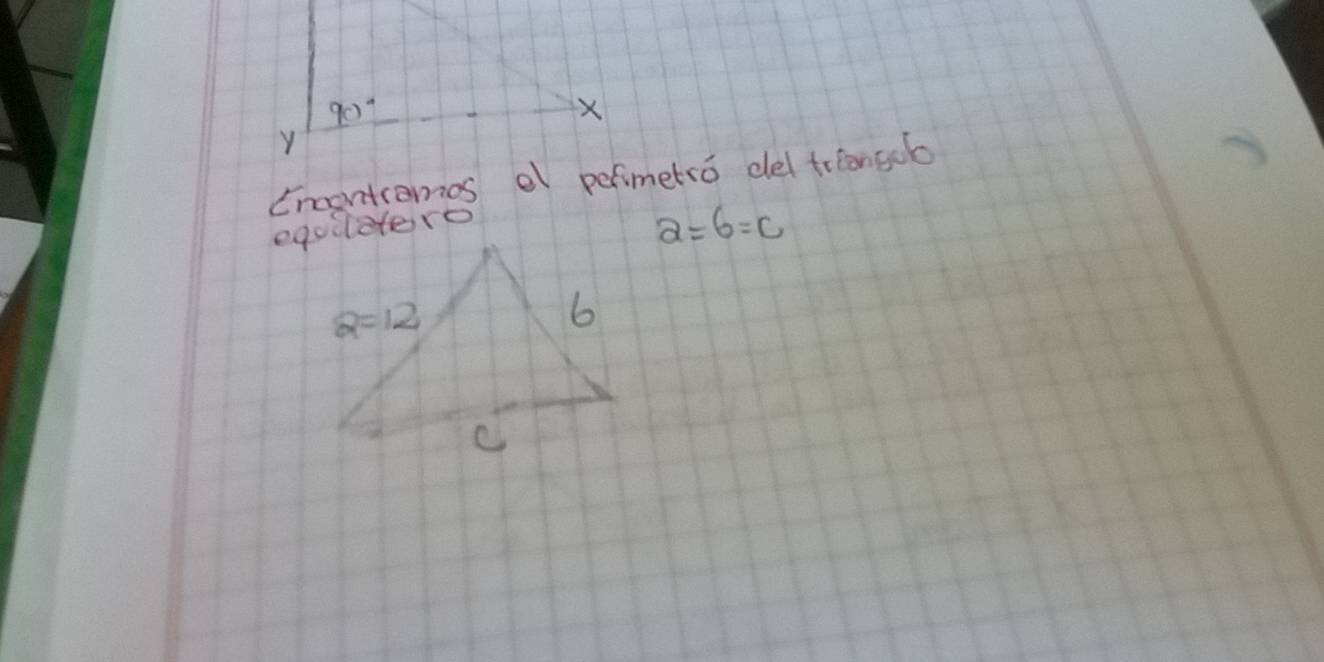 90°
y
x
Encontramos el perimetró del triangulo
equilatero
a=b=c
a=12
b
c